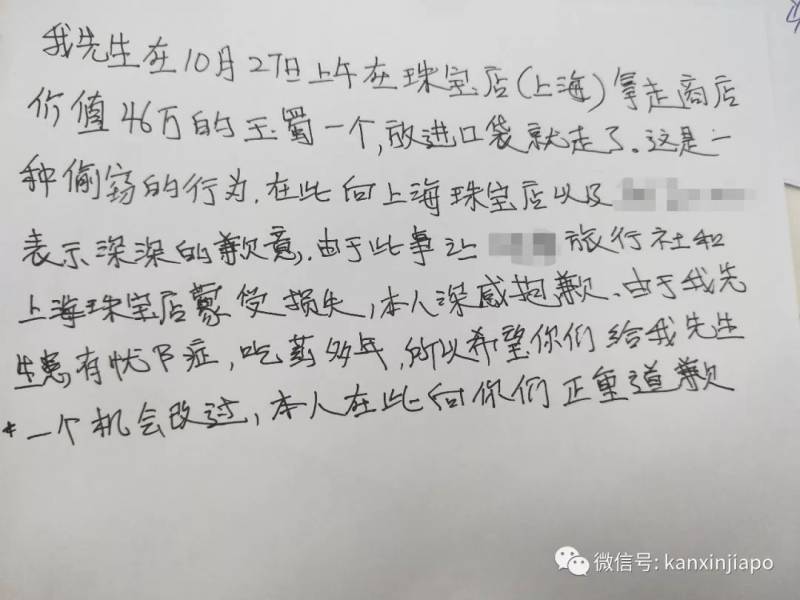 我先生在10月27日上午在珠宝店(上海)拿走商店
价值46万的玉蜀一个,放进口袋就走了。这是一
种偷窃的行为.在此向上海珠宝店以及
表示深深的歉意,由于此事让 旅行社和
上海珠宝店蒙受损失,本人深感抱歉、由于我先
生患有忧下症,吃药多年,所以希望你们给我先生
一个机会改过,本人在此向你们正重道歉
微信号: kanxinjiapo